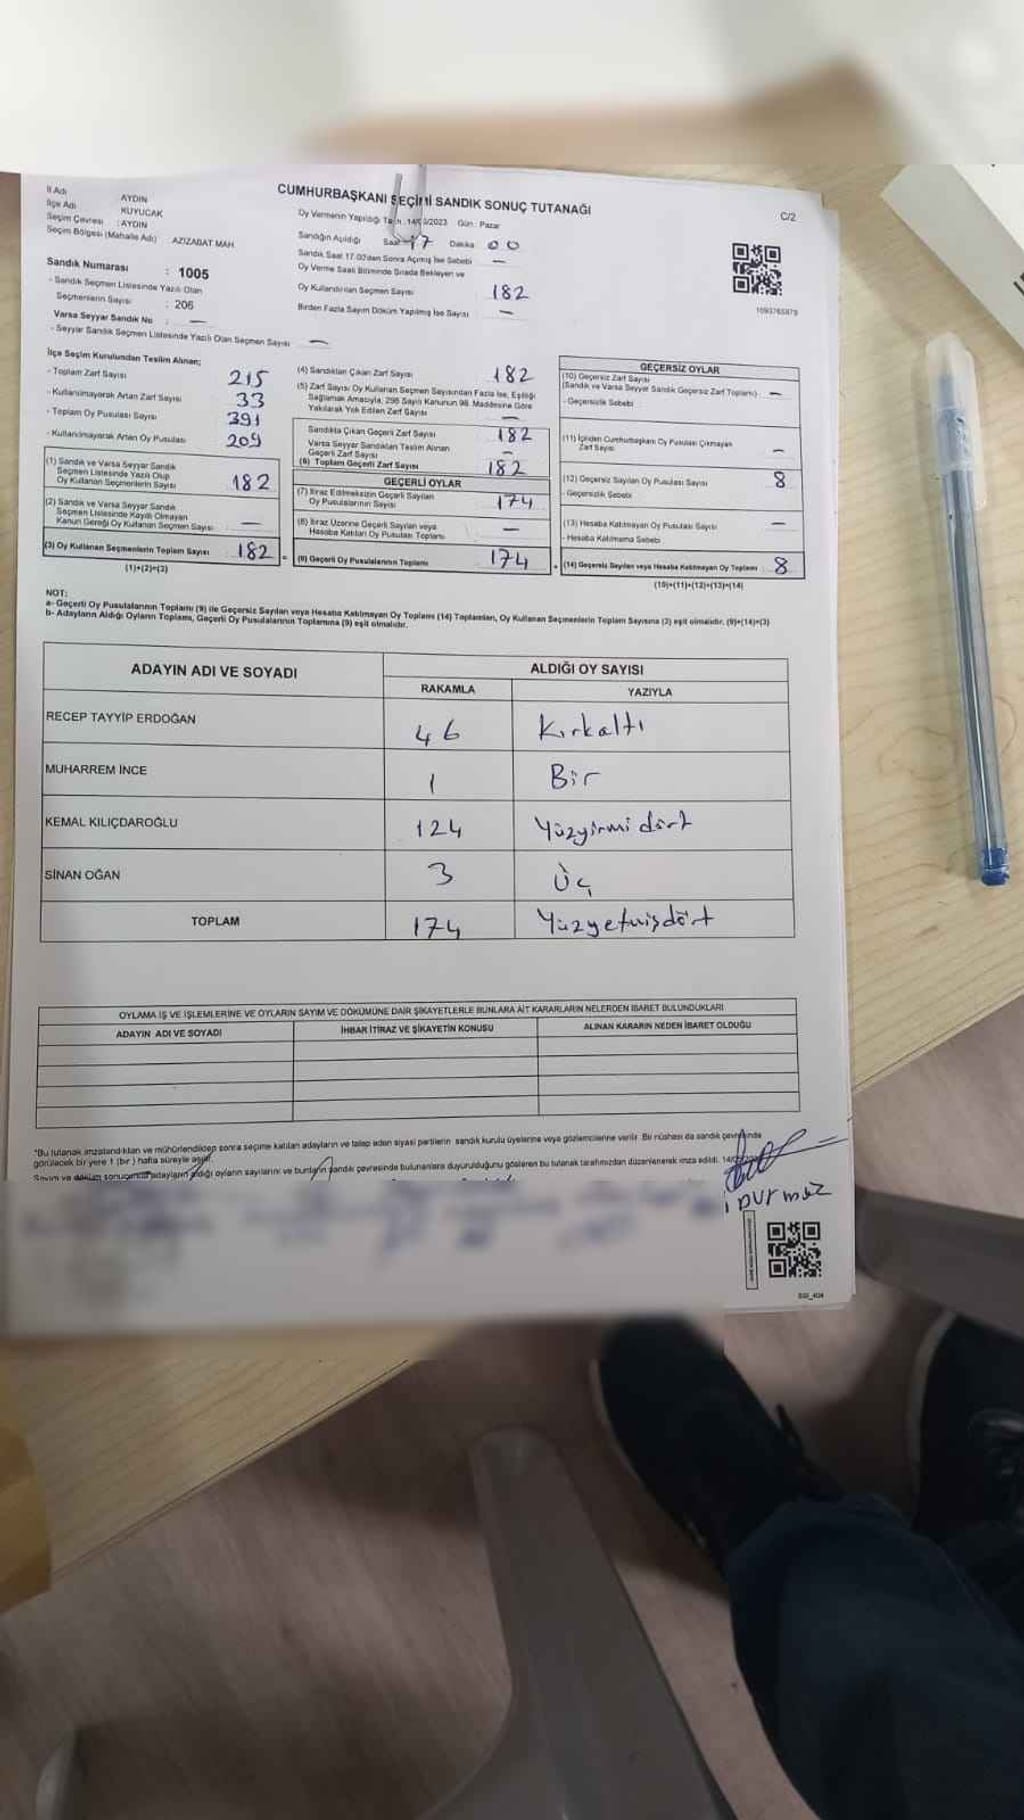 CUMHURBAŞKANI SEÇİMİ SANDIK SONUÇ TUTANAĞI
C/2
İl Adı AYDIN
İlçe Adı KUYUCAK
Seçim Çevresi : AYDIN
Seçim Bölgesi (Mahalle Adı) AZIZABAT MAH.
Oy Vermenin Yapıldığı Tarih : 14/05/2023 Gün : Pazar
Sandığın Açıldığı Saat 17 Dakika 00
Sandık Saat 17.00'dan Sonra Açılmış İse Sebebi —
Oy Verme Saati Bitiminde Sırada Bekleyen ve
Oy Kullandırılan Seçmen Sayısı 182
Birden Fazla Sayım Döküm Yapılmış İse Sayısı —
Sandık Numarası : 1005
- Sandık Seçmen Listesinde Yazılı Olan
Seçmenlerin Sayısı : 206
Varsa Seyyar Sandık No : —
- Seyyar Sandık Seçmen Listesinde Yazılı Olan Seçmen Sayısı —
İlçe Seçim Kurulundan Teslim Alınan;
- Toplam Zarf Sayısı 215
- Kullanılmayarak Artan Zarf Sayısı 33
- Toplam Oy Pusulası Sayısı 391
- Kullanılmayarak Artan Oy Pusulası 209
(1) Sandık ve Varsa Seyyar Sandık
Seçmen Listesinde Yazılı Olup
Oy Kullanan Seçmenlerin Sayısı 182
(2) Sandık ve Varsa Seyyar Sandık
Seçmen Listesinde Kaydı Olmayan
Kanun Gereği Oy Kullanan Seçmen Sayısı —
(3) Oy Kullanan Seçmenlerin Toplam Sayısı 182
(1)+(2)=(3)
(4) Sandıktan Çıkan Zarf Sayısı 182
(5) Zarf Sayısı Oy Kullanan Seçmen Sayısından Fazla İse, Eşitliği
Sağlamak Amacıyla, 298 Sayılı Kanunun 98. Maddesine Göre
Yakılarak Yok Edilen Zarf Sayısı —
Sandıkta Çıkan Geçerli Zarf Sayısı 182
Varsa Seyyar Sandıktan Teslim Alınan
Geçerli Zarf Sayısı —
(6) Toplam Geçerli Zarf Sayısı 182
GEÇERLİ OYLAR
(7) İtiraz Edilmeksizin Geçerli Sayılan
Oy Pusulalarının Sayısı 174
(8) İtiraz Üzerine Geçerli Sayılan veya
Hesaba Katılan Oy Pusulası Toplamı —
(9) Geçerli Oy Pusulalarının Toplamı 174
GEÇERSİZ OYLAR
(10) Geçersiz Zarf Sayısı
(Sandık ve Varsa Seyyar Sandık Geçersiz Zarf Toplamı) —
- Geçersizlik Sebebi
(11) İçinden Cumhurbaşkanı Oy Pusulası Çıkmayan
Zarf Sayısı —
(12) Geçersiz Sayılan Oy Pusulası Sayısı 8
- Geçersizlik Sebebi
(13) Hesaba Katılmayan Oy Pusulası Sayısı —
- Hesaba Katılmama Sebebi
(14) Geçersiz Sayılan veya Hesaba Katılmayan Oy Toplamı 8
(10)+(11)+(12)+(13)=(14)
NOT:
a- Geçerli Oy Pusulalarının Toplamı (9) ile Geçersiz Sayılan veya Hesaba Katılmayan Oy Toplamı (14) Toplamları, Oy Kullanan Seçmenlerin Toplam Sayısına (3) eşit olmalıdır. (9)+(14)=(3)
b- Adayların Aldığı Oyların Toplamı, Geçerli Oy Pusulalarının Toplamına (9) eşit olmalıdır.
ADAYIN ADI VE SOYADI ALDIĞI OY SAYISI
RAKAMLA YAZIYLA
RECEP TAYYİP ERDOĞAN 46 Kırkaltı
MUHARREM İNCE 1 Bir
KEMAL KILIÇDAROĞLU 124 Yüzyirmi dört
SİNAN OĞAN 3 Üç
TOPLAM 174 Yüzyetmişdört
OYLAMA İŞ VE İŞLEMLERİNE VE OYLARIN SAYIM VE DÖKÜMÜNE DAİR ŞİKAYETLERLE BUNLARA AİT KARARLARIN NELERDEN İBARET BULUNDUKLARI
ADAYIN ADI VE SOYADI İHBAR İTİRAZ VE ŞİKAYETİN KONUSU ALINAN KARARIN NEDEN İBARET OLDUĞU
"Bu tutanak imzalandıktan ve mühürlendikten sonra seçime katılan adayların ve talep eden siyasi partilerin sandık kurulu üyelerine veya gözlemcilerine verilir. Bir nüshası da sandık çevresinde
görülecek bir yere 1 (bir) hafta süreyle asılır.
Sayım ve döküm sonucunda adayların aldığı oyların sayılarını ve bunların sandık çevresinde bulunanlara duyurulduğunu gösteren bu tutanak tarafımızdan düzenlenerek imza edildi.